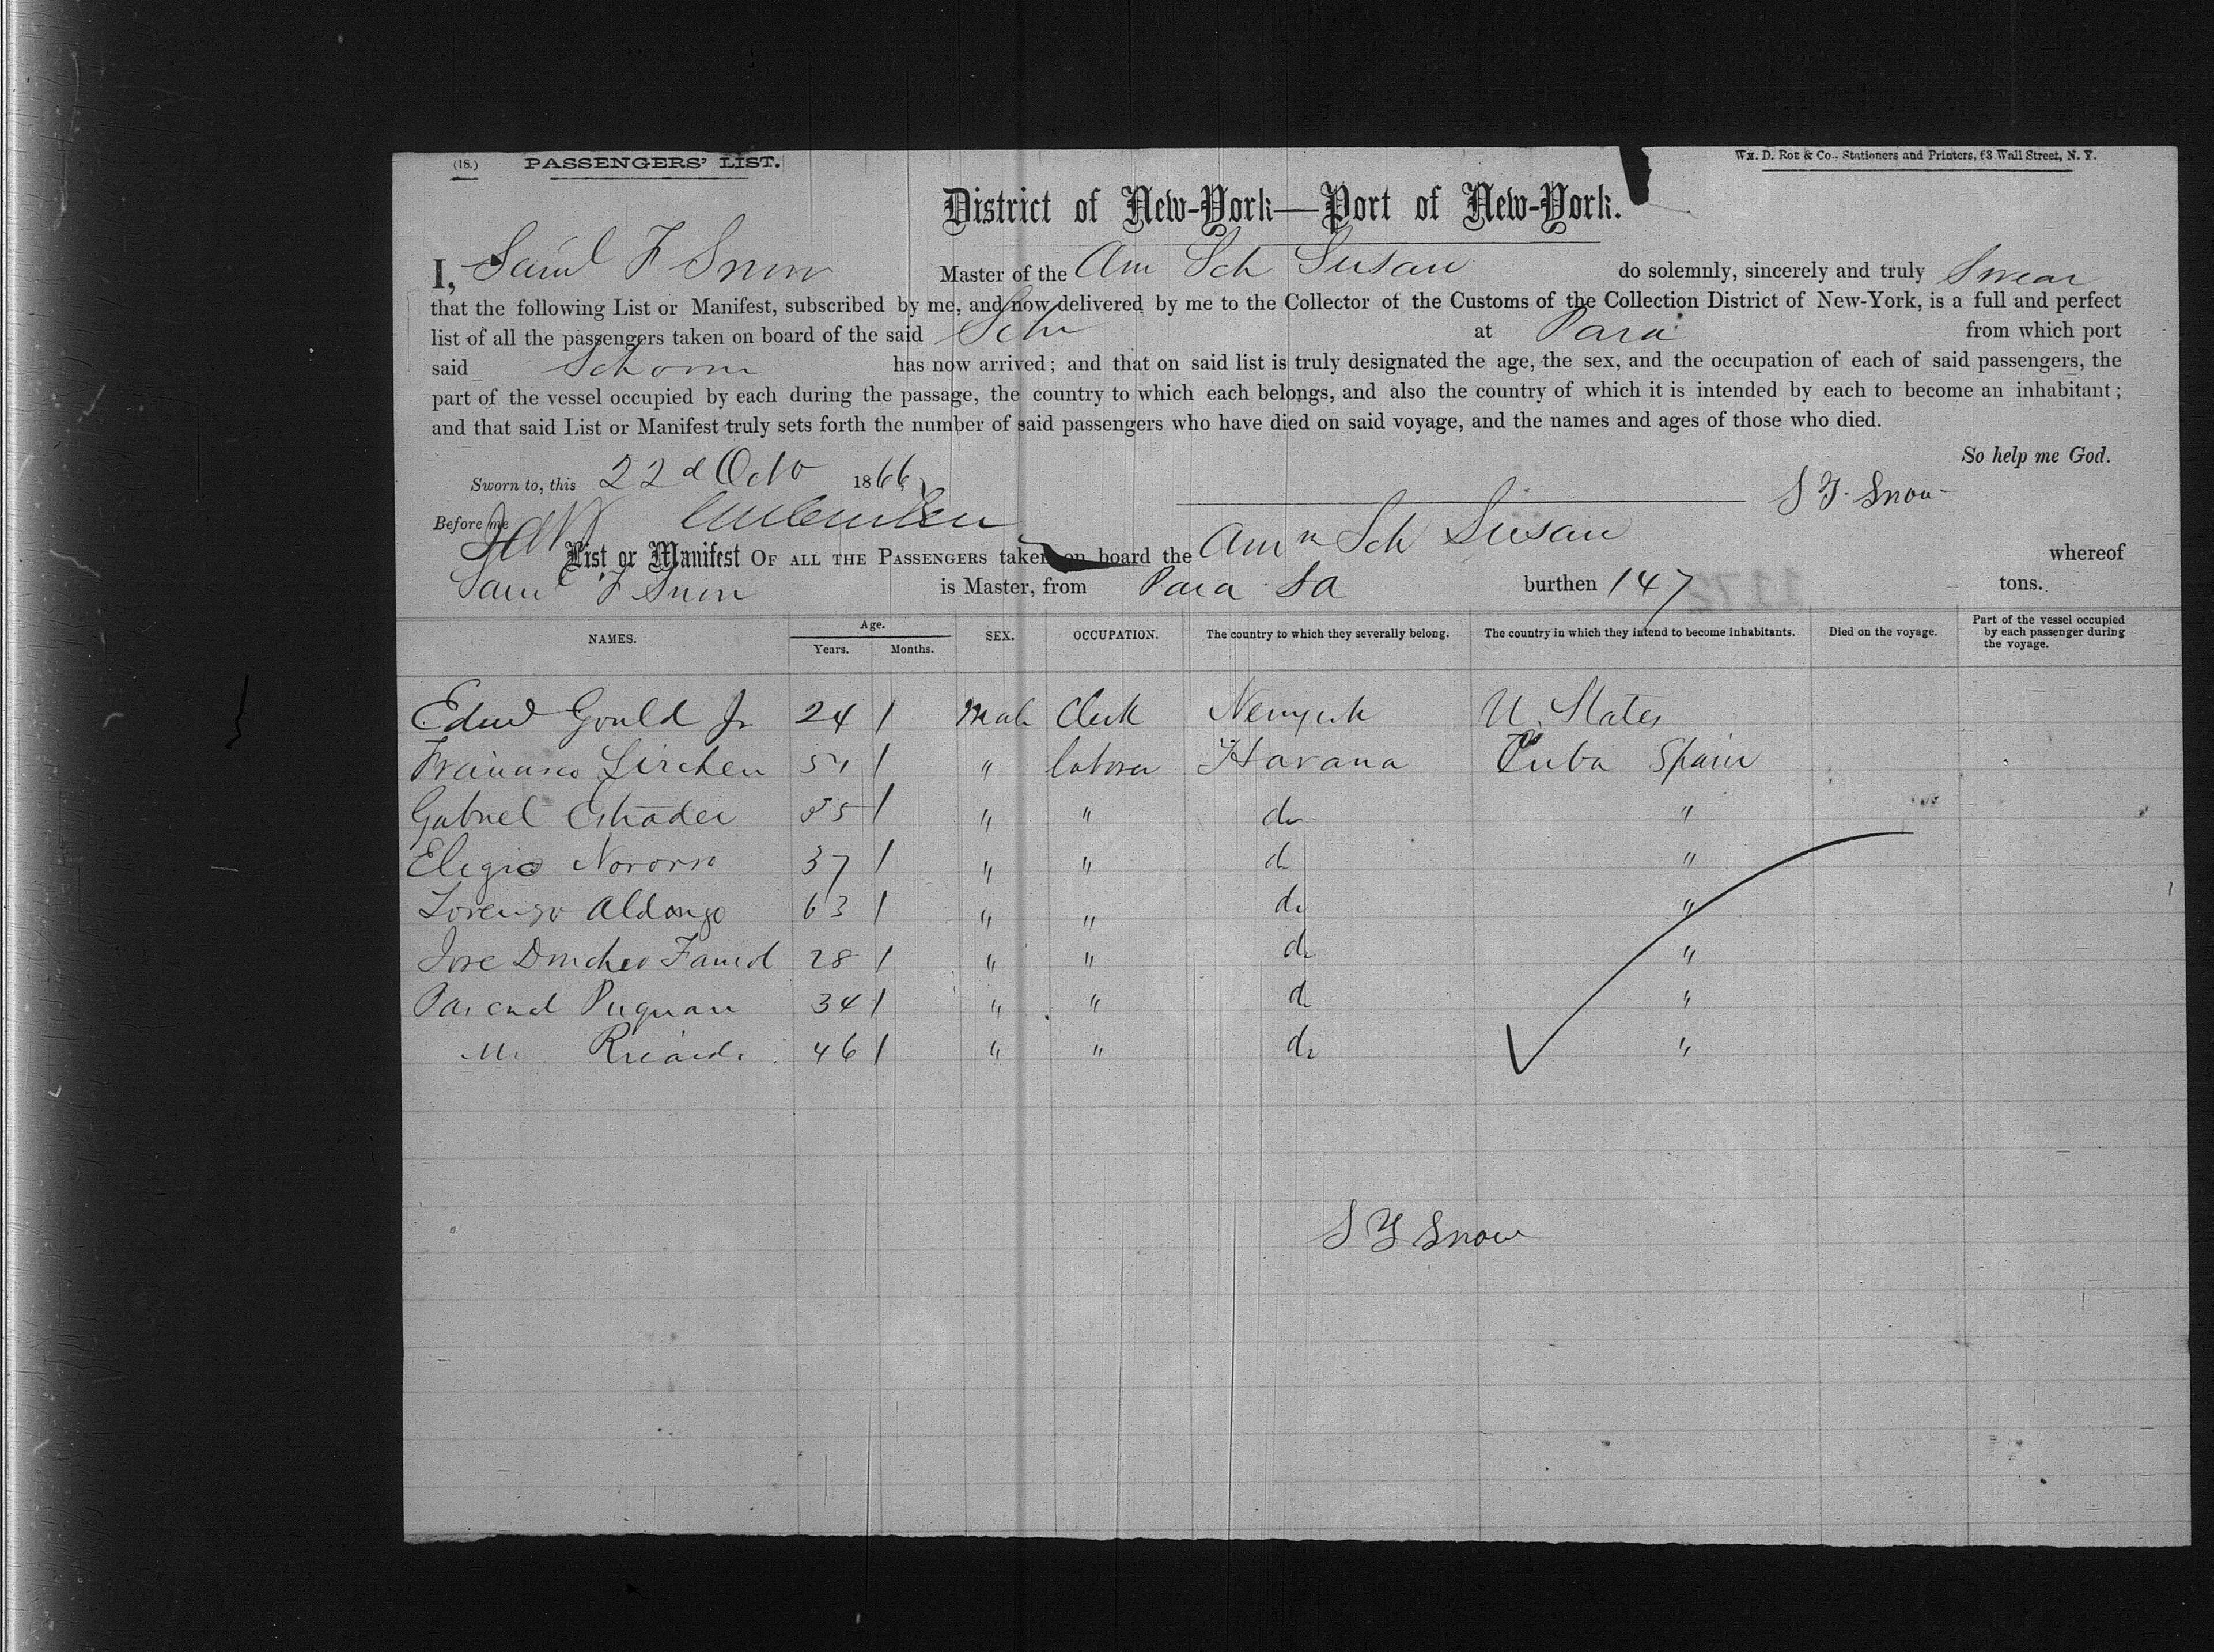 (18.) PASSENGERS' LIST. Wm. D. Roe & Co., Stationers and Printers, 63 Wall Street, N. Y.
District of New-York—Port of New-York.
I, Saml F Snow Master of the Am Sch Susan do solemnly, sincerely and truly Swear
that the following List or Manifest, subscribed by me, and now delivered by me to the Collector of the Customs of the Collection District of New-York, is a full and perfect
list of all the passengers taken on board of the said Sch at Para from which port
said Schoon has now arrived; and that on said list is truly designated the age, the sex, and the occupation of each of said passengers, the
part of the vessel occupied by each during the passage, the country to which each belongs, and also the country of which it is intended by each to become an inhabitant;
and that said List or Manifest truly sets forth the number of said passengers who have died on said voyage, and the names and ages of those who died.
So help me God.
Sworn to, this 22d Octo 1866 S F. Snow
Before me
List or Manifest OF ALL THE PASSENGERS taken on board the Amn Sch Susan whereof
Saml F Snow is Master, from Para burthen 147 tons.
NAMES. Age. Years. Months. SEX. OCCUPATION. The country to which they severally belong. The country in which they intend to become inhabitants. Died on the voyage. Part of the vessel occupied by each passenger during the voyage.
Edwd Gould Jr 24 / Male Clerk Newyork U. States
Francisco / " laborer Havana Cuba Spain
Gabriel / " " do "
Eligio 37 / " " do "
Lorenzo Aldongo 63 / " " do "
Jose 28 / " " do "
Pascual 34 / " " do "
46 / " " do "
S F Snow